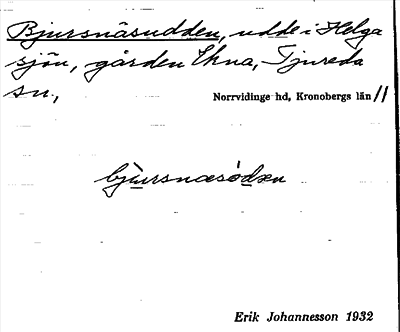 Bjursnäsudden, udde i Helga
sjön, gården Ekna, Tjureda
sn.,
Norrvidinge hd, Kronobergs län //
bjursnæsödæn
Erik Johannesson 1932